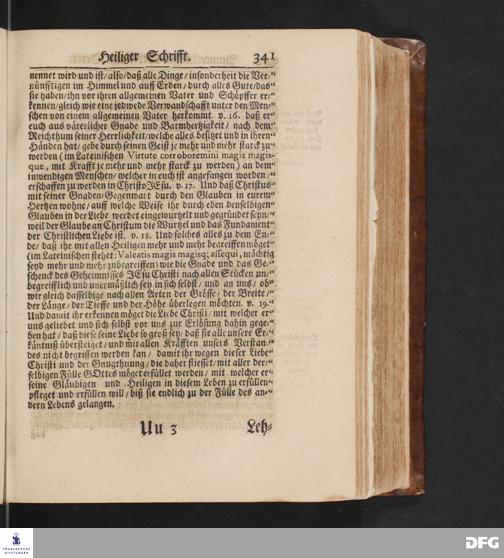 Heiliger Schrifft. 341
nennet wird und ist/ also/ daß alle Dinge/ insonderheit die Ver-"
nünfftigen im Himmel und auff Erden/ durch alles Gute/ das"
sie haben/ ihn vor ihren allgemeinen Vater und Schöpffer er-"
kennen/ gleich wie eine jedwede Verwandschafft unter den Men-"
schen von einem allgemeinen Vater herkommt. v. 16. daß er"
euch aus väterlicher Gnade und Barmhertzigkeit/ nach dem"
Reichthum seiner Herrlichkeit/ welche alles besitzet und in ihren"
Händen hat/ gebe durch seinen Geist je mehr und mehr starck zu"
werden (im Lateinischen Virtute corroboremini magis magis-"
que, mit Krafft je mehr und mehr starck zu werden) an dem"
inwendigen Menschen/ welcher in euch ist angefangen worden/"
erschaffen zu werden in Christo JEsu. v. 17. Und daß Christus"
mit seiner Gnaden-Gegenwart durch den Glauben in eurem"
Hertzen wohne/ auff welche Weise ihr durch eben denselbigen"
Glauben in der Liebe werdet eingewurtzelt und gegründet seyn/"
weil der Glaube an Christum die Wurtzel und das Fundament"
der Christlichen Liebe ist. v. 18. Und solches alles zu dem En-"
de/ daß ihr mit allen Heiligen mehr und mehr begreiffen möget"
(im Lateinischen stehet: Valeatis magis magisq; assequi, mächtig
seyd mehr und mehr zubegreiffen) wie die Gnade und das Ge-"
schenck des Geheimnisses JEsu Christi nach allen Stücken un-"
begreifflich und unermäßlich sey in sich selbst/ und an uns/ ob"
wir gleich dasselbige nach allen Arten der Grösse/ der Breite/"
der Länge/ der Tieffe und der Höhe überlegen möchten. v. 19."
Und damit ihr erkennen möget die Liebe Christi/ mit welcher er"
uns geliebet und sich selbst vor uns zur Erlösung dahin gege-"
ben hat/ daß diese seine Liebe so groß sey/ daß sie alle unsere Er-"
käntniß übersteiget/ und mit allen Kräfften unsers Verstan-"
des nicht begriffen werden kan/ damit ihr wegen dieser Liebe"
Christi und der Gnugthuung/ die daher fliesset/ mit aller der-"
selbigen Fülle GOttes möget erfüllet werden/ mit welcher er"
seine Gläubigen und Heiligen in diesem Leben zu erfüllen"
pfleget und erfüllen will/ biß sie endlich zu der Fülle des an-"
dern Lebens gelangen.
Uu 3 Leh-
FRANCKESCHE
STIFTUNGEN
DFG